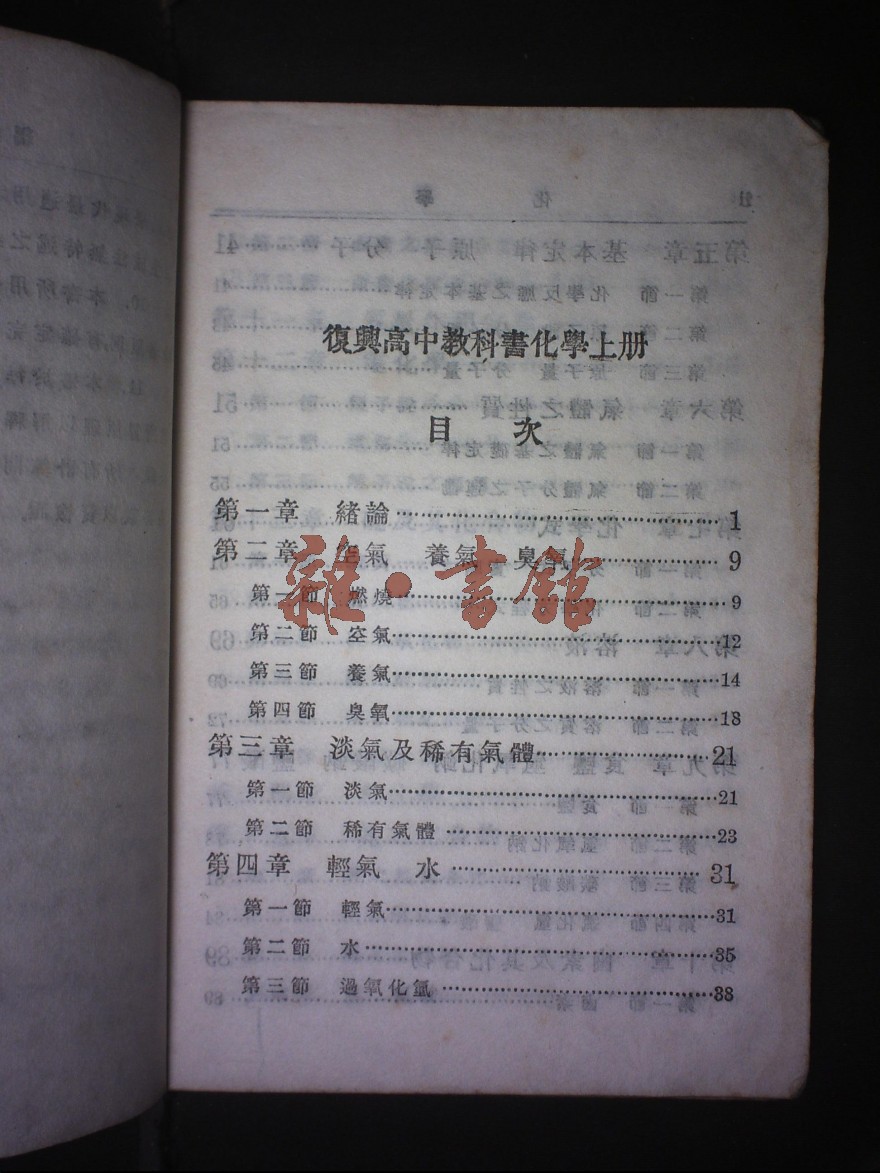 復興高中教科書化學上册
目次
第一章 緒論 1
第二章 空氣 養氣 臭氧 9
第一節 燃燒 9
第二節 空氣 12
第三節 養氣 14
第四節 臭氧 18
第三章 淡氣及稀有氣體 21
第一節 淡氣 21
第二節 稀有氣體 23
第四章 輕氣 水 31
第一節 輕氣 31
第二節 水 35
第三節 過氧化氫 38
雜·書館